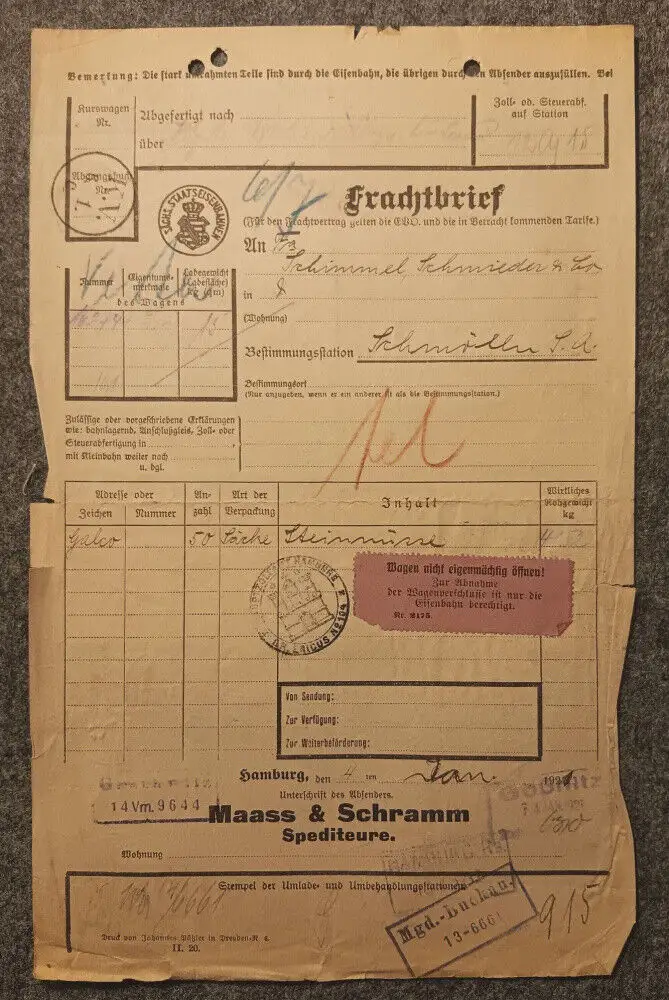 Bemerkung: Die stark umrahmten Teile sind durch die Eisenbahn, die übrigen durch den Absender auszufüllen. Bei
Kurswagen
Nr.
Abgefertigt nach
über
Zoll- od. Steuerabf.
auf Station
Abgangsbuch
Nr.
SÄCHS. STAATSEISENBAHNEN
Frachtbrief
(Für den Frachtvertrag gelten die EVO. und die in Betracht kommenden Tarife.)
An Fa
Schimmel Schmieder & Co
in
(Wohnung)
Bestimmungsstation Schmölln S.A.
Bestimmungsort
(Nur anzugeben, wenn er ein anderer ist als die Bestimmungsstation.)
Nummer
Eigentums-
merkmale
Ladegewicht
(Ladefläche)
kg (qm)
des Wagens
15
Zulässige oder vorgeschriebene Erklärungen
wie: bahnlagernd, Anschlußgleis, Zoll- oder
Steuerabfertigung in
mit Kleinbahn weiter nach
u. dgl.
Adresse oder
Zeichen Nummer
An-
zahl
Art der
Verpackung
Inhalt
Wirkliches
Rohgewicht
kg
Galco 50 Säcke Steinnüsse
ERICUS No 104
Wagen nicht eigenmächtig öffnen!
Zur Abnahme
der Wagenverschlüsse ist nur die
Eisenbahn berechtigt.
Nr. 2175.
Von Sendung:
Zur Verfügung:
Zur Weiterbeförderung:
Hamburg, den 4 ten Jan. 192
Unterschrift des Absenders.
14 Vm. 9644
Gößnitz
Maass & Schramm
Spediteure.
Wohnung
Stempel der Umlade- und Umbehandlungsstationen
Mgd.-Buckau.
13-6661
915
Druck von Johannes Päßler in Dresden-N 6.
II. 20.